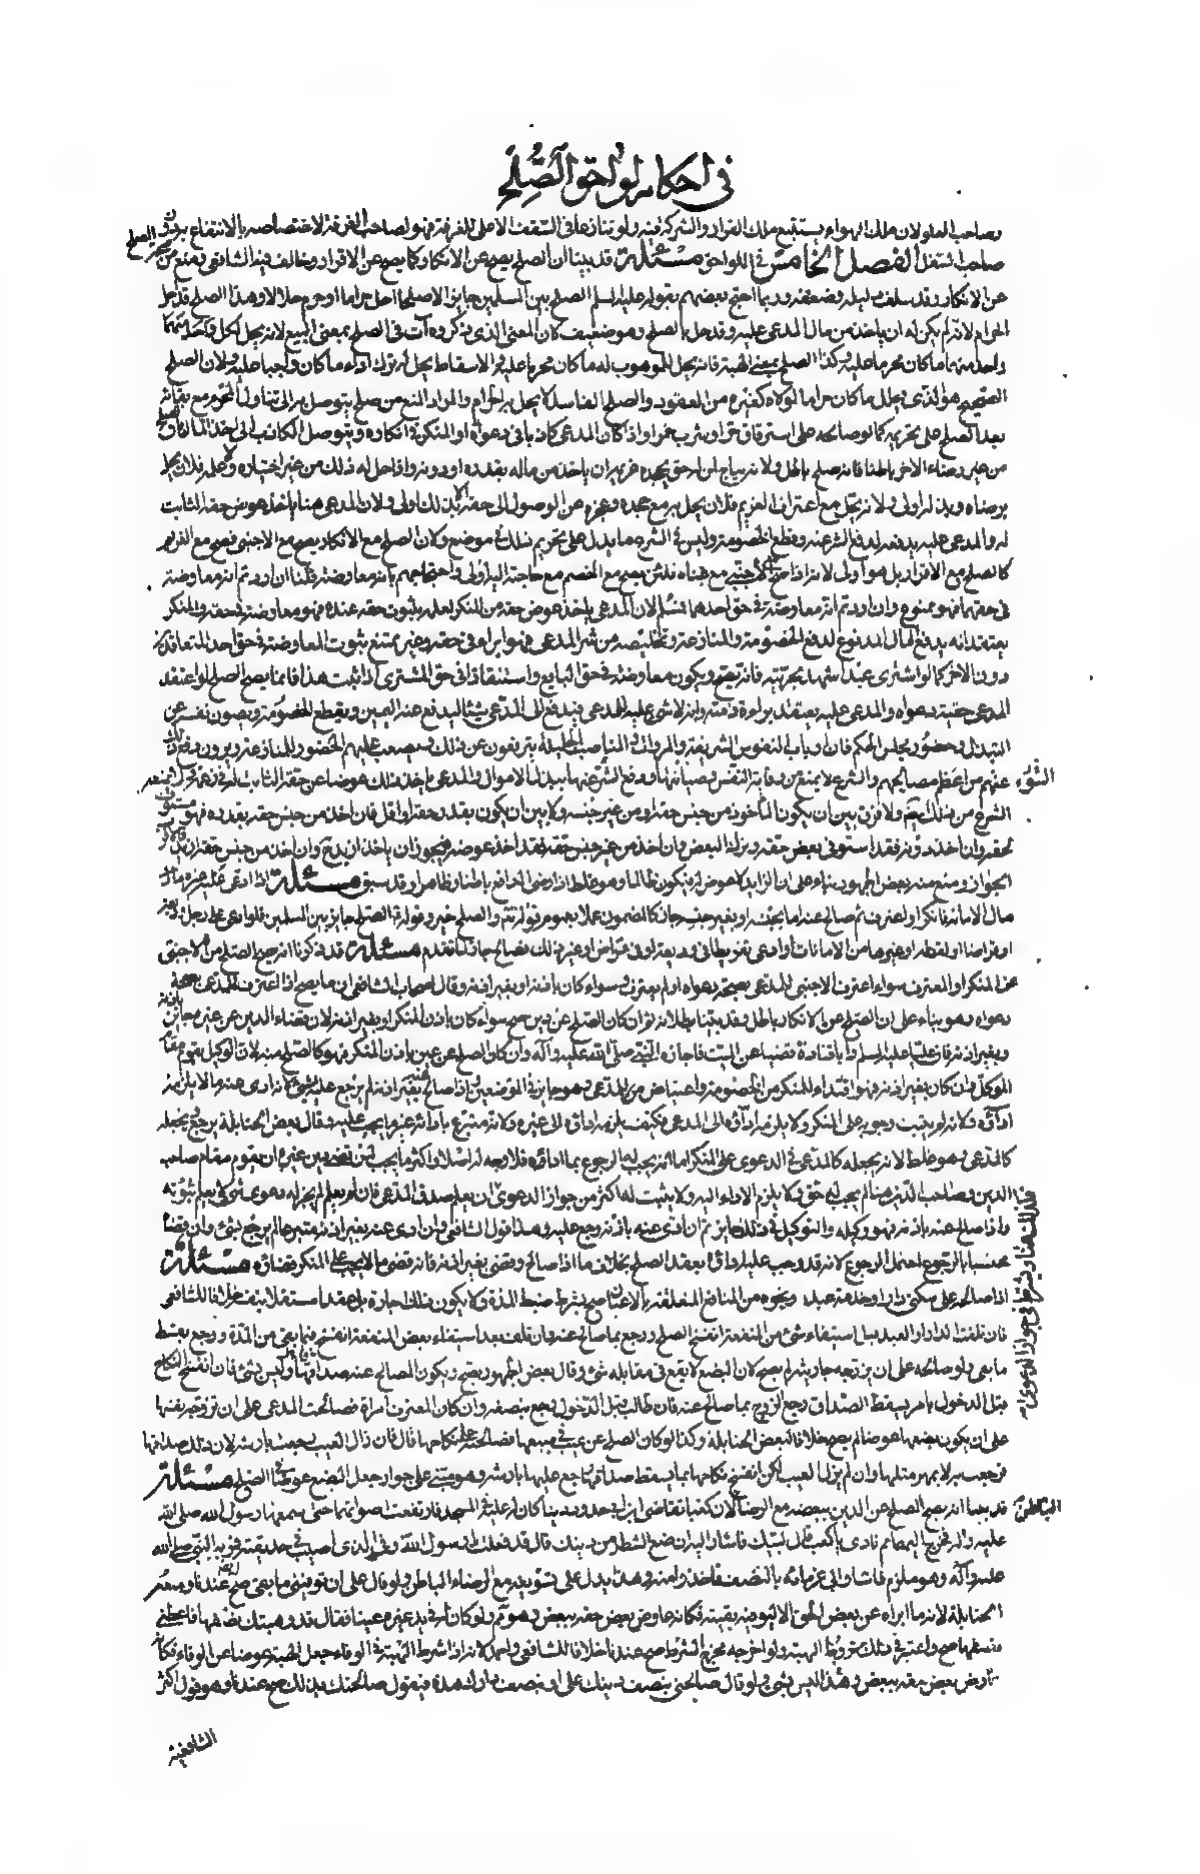 في أحكام لواحق الصلح
وصاحب العلو لان ملك الهواء يستتبع ملك القرار والشركة فيه ولو تنازعا في السقف الاعلى للغرفة فهو لصاحب الغرفة لاختصاصه بالانتفاع به دون
صاحب السفل الفصل الخامس في اللواحق مسئلة قد بينا ان الصلح يصح عن الانكار كما يصح عن الاقرار وخالف فيه الشافعي ومنع من الصلح
عن الانكار وقد سلف دليله وضعفه وربما احتج بعضهم بقوله عليه السلم الصلح بين المسلمين جايز الا صلحا احل حراما او حرم حلالا وهذا الصلح قد احل
الحرام لانه لم يكن له ان ياخذ من مال المدعى عليه وقد حل بالصلح وهو ضعيف كان المعنى الذي ذكروه آت في الصلح بمعنى البيع لانه يحل لكل واحد منهما
ما كان محرما عليه وكذا الصلح بمعنى الهبة فانه يحل للموهوب له ما كان محرما عليه والاسقاط يحل له ترك اداء ما كان واجبا عليه ولان الصلح
الصحيح هو الذي يحلل ما كان حراما لولاه كغيره من العقود والصلح الفاسد لا يحل به الحرام والمراد المنع من صلح يتوصل به الى تناول المحرم مع بقائه
بعد الصلح على تحريمه كما لو صالحه على استرقاق حر او شرب خمر او اذا كان المدعي كاذبا في دعواه او المنكر في انكاره ويتوصل الكاذب الى اخذ المال بالصلح
من غير رضاء الاخر باطنا فانه صلح باطل ولانه يباح لمن له حق يجحده غريمه ان ياخذ من ماله بقدره او دونه واذا حل له ذلك من غير اختياره ولا علمه فلان يحل
برضاه وبذله اولى ولانه يحل مع اعتراف الغريم فلان يحل به مع جحده وعجزه عن الوصول الى حقه الا بذلك اولى ولان المدعي هنا ياخذ عوض حقه الثابت
له والمدعى عليه يدفعه لدفع الشر عنه وقطع الخصومة وليس في الشرع ما يدل على تحريم ذلك في موضع ولان الصلح مع الانكار يصح مع الاجنبي فصح مع الغريم
كالصلح مع الاقرار بل هو اولى لانه اذا صح مع الاجنبي مع غناه فلان يصح مع الخصم مع حاجته اليه اولى واحتجاجهم بانه معاوضة قلنا ان اردتم انه معاوضة
في حقهما فهو ممنوع وان اردتم انه معاوضة في حق احدهما مسلم لان المدعي ياخذ عوض حقه من المنكر لعلمه بثبوت حقه عنده فهو معاوضة في حقه والمنكر
يعتقد انه يدفع المال لدفع الخصومة والمنازعة وتخليصه من شر المدعي فهو ابراء في حقه وغير ممتنع ثبوت المعاوضة في حق احد المتعاقدين
دون الاخر كما لو اشترى عبدا شهد بحريته فانه يصح ويكون معاوضة في حق البايع واستنقاذا في حق المشتري اذا ثبت هذا فانما يصح الصلح لو اعتقد
المدعي حقية دعواه والمدعى عليه يعتقد براءة ذمته وانه لا شيء عليه للمدعي فيدفع الى المدعي شيئا ليدفع عنه اليمين ويقطع الخصومة ويصون نفسه عن
التبذل وحضور مجلس الحكم فان ارباب النفوس الشريفة والمروات والمناصب الجليلة يترفعون عن ذلك ويصعب عليهم الحضور للمنازعة ويرون دفع ذلك
عنهم من اعظم مصالحهم والشرع لا يمنع من وقاية النفس وصيانتها ودفع الشر عنها ببذل الاموال والمدعي ياخذ ذلك عوضا عن حقه الثابت له في زعمه فلا يمنعه
الشرع من ذلك ولا فرق بين ان يكون الماخوذ من جنس حقه او من غير جنسه ولا بين ان يكون بقدر حقه او اقل فان اخذ من جنس حقه بقدره فهو مستوف
لحقه وان اخذ دونه فقد استوفى بعض حقه وترك البعض وان اخذ من غير جنس حقه فقد اخذ عوضه فيجوز ان ياخذ ازيد وان اخذ من جنس حقه ازيد
الجواز ومنع منه بعض الجمهور بناء على ان الزايد لا عوض له فيكون ظالما وهو غلط اذا رضي الدافع باطنا وظاهرا وقد سبق مسئلة اذا ادعى على غيره مالا
مال الامانة فانكر او اعترف ثم صالح عنه اما بجنسه او بغير جنسه جاز كالمضمون عملا بعموم قوله تع والصلح خير وقوله ع الصلح جايز بين المسلمين فلو ادعى على رجل وديعة
او قراضا او لقطة او غيرها من الامانات او ادعى تفريطا في وديعة او في قراض او غير ذلك فصالح جاز لما تقدم مسئلة قد ذكرنا انه صح الصلح من الاجنبي
عن المنكر او المعترف سواء اعترف الاجنبي للمدعي بصحة دعواه او لم يعترف وسواء كان باذنه او بغير اذنه وقال اصحاب الشافعي انما يصح اذا اعترف للمدعي بصحة
دعواه وهو بناء على ان الصلح على الانكار باطل وقد بينا بطلانه ثم ان كان الصلح عن دين صح سواء كان باذن المنكر او بغير اذنه لان قضاء الدين عن غيره جايز باذنه
وبغير اذنه فان عليا عليه السلم وابا قتادة قضيا عن الميت فاجازه النبي صلى الله عليه وآله وان كان الصلح عن عين باذن المنكر فهو كالصلح منه لان الوكيل يقوم مقام
الموكل وان كان بغير اذنه فهو افتداء للمنكر من الخصومة واعتياض من المدعي وهو جايز في الموضعين واذا صالح عنه بغير اذنه لم يرجع عليه بشيء لانه ادى عنه ما لا يلزمه
اداؤه ولانه لم يثبت وجوبه على المنكر ولا يلزمه اداؤه الى المدعي فكيف يلزمه اداؤه الى غيره ولانه متبرع بادائه غير ما يجب عليه وقال بعض الحنابلة يرجع ويجعله
كالمدعي وهو غلط لانه يجعله كالمدعي في الدعوى على المنكر اما انه يجب له الرجوع بما اداه فلا وجه له اصلا واكثر ما يجب لمن قضى دين غيره ان يقوم مقام صاحب
الدين وصاحب الدين هنا لم يجب له حق ولا يلزم الاداء اليه ولا يثبت له اكثر من جواز الدعوى ان يعلم صدق المدعي فان لم يعلم لم يجز له دعوى شيء لا يعلم ثبوته
واذا صالح عنه باذنه فهو وكيله والتوكيل في ذلك جايز ثم ان ادى عنه باذنه رجع عليه وهذا قول الشافعي وان ادى عنه بغير اذنه متبرعا لم يرجع بشيء وان قضاه
محتسبا بالرجوع احتمل الرجوع لانه قد وجب عليه اداؤه بعقد الصلح بخلاف ما اذا صالح وقضى بغير اذنه فانه قضى ما لا يجب على المنكر قضاؤه مسئلة
اذا صالحه على سكنى دار او خدمة عبد ونحوه من المنافع المتعلقة بالاعيان صح بشرط ضبط المدة ولا يكون ذلك اجارة بل عقدا مستقلا بنفسه خلافا للشافعي
فان تلفت الدار او العبد قبل استيفاء شيء من المنفعة انفسخ الصلح ورجع بما صالح عنه وان تلف بعد استيفاء بعض المنفعة انفسخ فيما بقي من المدة ورجع بقسط
ما بقي ولو صالحه على ان يزوجه جاريته لم يصح لان البضع لا يقع في مقابله شيء وقال بعض الجمهور يصح ويكون المصالح عنه صداقها وليس بشيء فان انفسخ النكاح
قبل الدخول بامر يسقط الصداق رجع الزوج بما صالح عنه وان طلق قبل الدخول رجع بنصفه وان كان المعترف امراة فصالحت المدعي على ان تزوجه نفسها
على ان يكون بضعها عوضا لم يصح خلافا لبعض الحنابلة وكذا لو كان الصلح عن عيب في مبيعها فصالحته على نكاحها قال فان زال العيب رجعت بارشه لان ذلك صداقها
فرجعت به لا بمهر مثلها وان لم يزل العيب لكن انفسخ نكاحها بما يسقط صداقها رجع عليها بارشه وهو مبني على جواز جعل البضع عوضا في الصلح مسئلة
قد بينا انه يصح الصلح عن الدين ببعضه مع الرضا لان كعبا تقاضى ابن ابي حدرد دينا كان له عليه في المسجد فارتفعت اصواتهما حتى سمعها رسول الله صلى الله
عليه وآله فخرج اليهما ثم نادى يا كعب قال لبيك فاشار اليه ان ضع الشطر من دينك قال قد فعلت يا رسول الله وفي الذي اصيب في حديقته فمر به النبي صلى الله
عليه وآله وهو ملزوم فاشار الى غرمائه بالنصف فاخذوه منه وهذا يدل على تسويغه مع الرضاء الباطن ولو قال على ان توفيني ما بقي صح عندنا ومنعه
الحنابلة لانه ما ابراه عن بعض الحق الا ليوفيه بقيته فكانه عاوض بعض حقه ببعض وهو مم ولو كان له في يد غيره عين فقال قد وهبتك نصفها فاعطني
نصفها صح واعتبر في ذلك شروط الهبة ولو اخرجه مخرج الشرط صح عندنا خلافا للشافعي واحمد لانه اذا شرط الهبة في الوفاء جعل الهبة عوضا عن الوفاء فكانه
عاوض بعض حقه ببعض وهذا ليس بشيء ولو قال صالحني بنصف دينك علي او بنصف دارك هذه فيقول صالحتك بذلك صح عندنا وهو قول اكثر
الشافعية